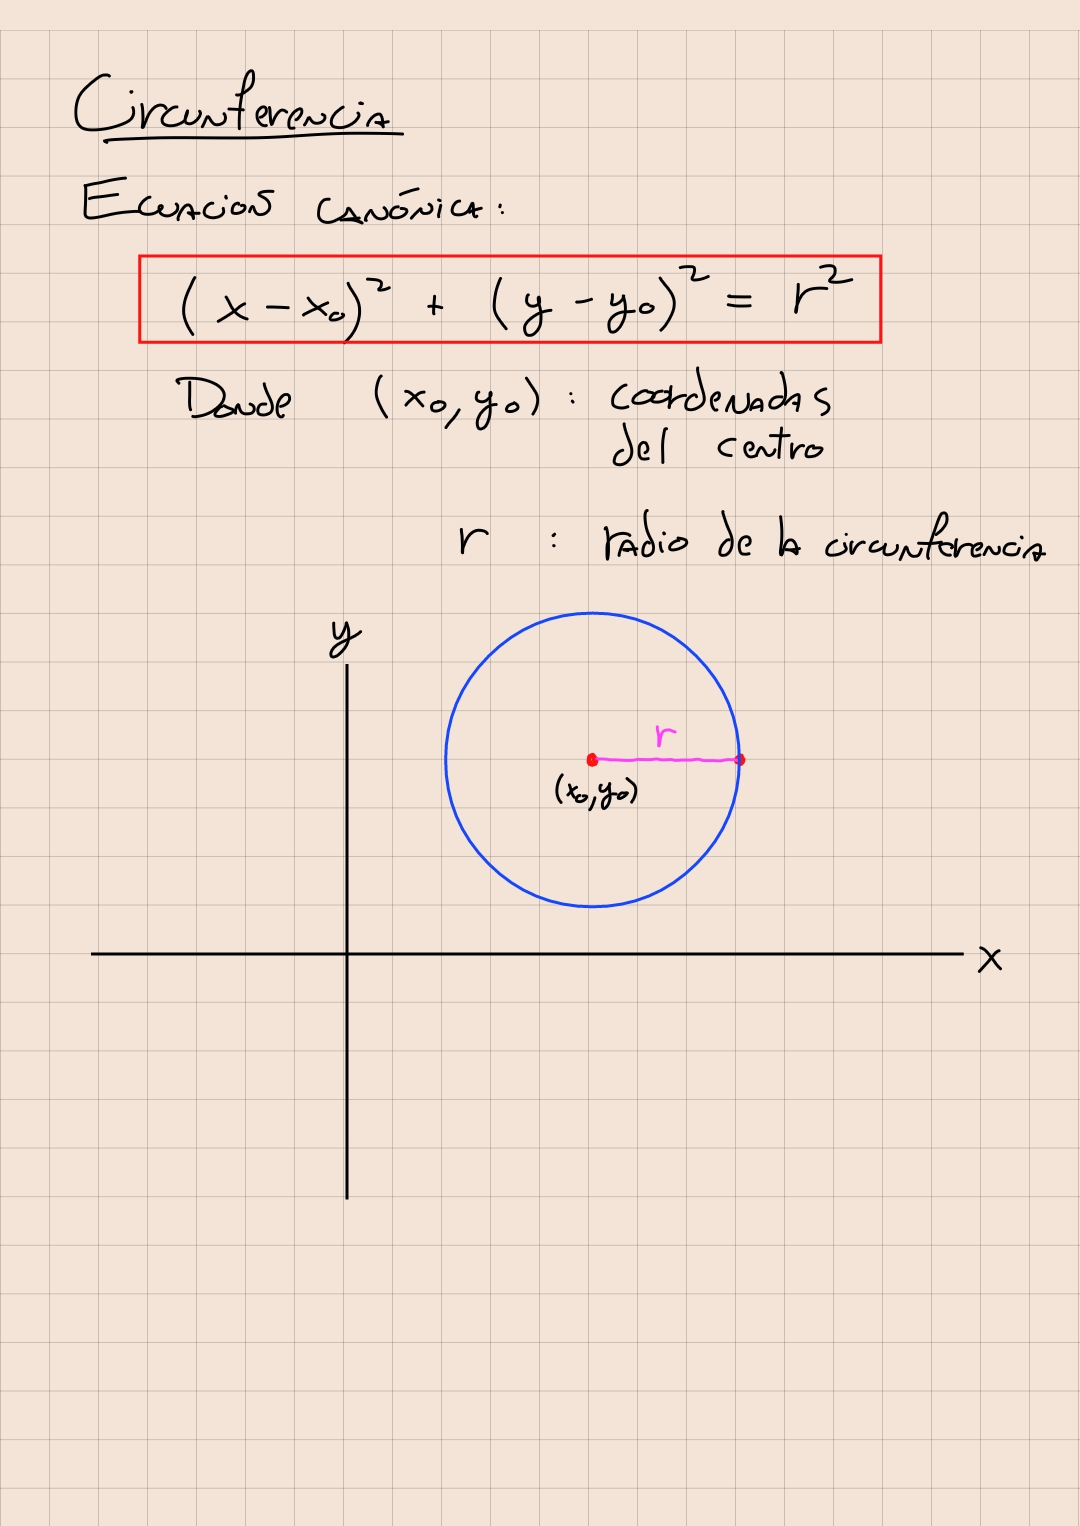 Circunferencia
Ecuacion canónica:
(x - x₀)² + (y - y₀)² = r²
Donde (x₀, y₀) : coordenadas
del centro
r : radio de la circunferencia
y
r
(x₀, y₀)
x